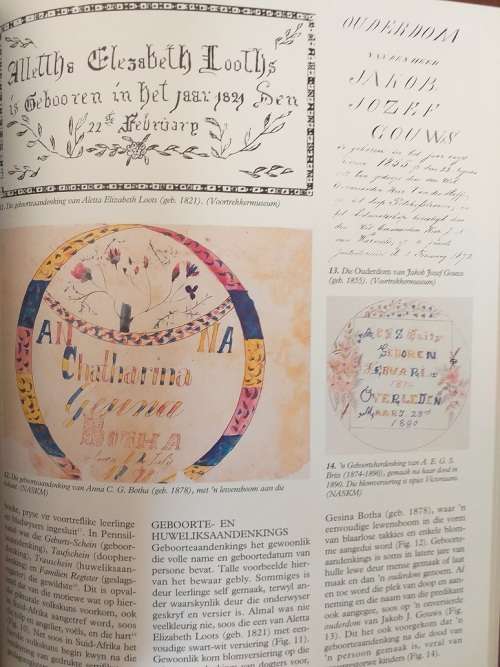 Alletha Elezabeth Looths
is Gebooren in het jaar 1821 Den
22ste February
11. Die geboorteaandenking van Aletta Elizabeth Loots (geb. 1821). (Voortrekkermuseum)
OUDERDOM
VAN DEN HEER
JAKOB
JOZEF
GOUWS
13. Die Ouderdom van Jakob Jozef Gouws
(geb. 1855). (Voortrekkermuseum)
AN NA
Chatharina
Gesina
BOTHA
12. Die geboorteaandenking van Anna C. G. Botha (geb. 1878), met 'n lewensboom aan die
(NASKM)
GEBOREN
FEBUARI
OVERLEDEN
MAART 23st
1890
14. 'n Geboorteherdenking van A. E. G. S.
Brits (1874-1890), gemaak na haar dood in
1890. Die blomversiering is tipies Victoriaans.
(NASKM)
boeke, pryse vir voortreflike leerlinge
en bladwysers ingesluit. In Pennsil-
wat die Geburts-Schein (geboor-
Taufschein (doopher-
Trauschein (huweliksaan-
en Familien Register (geslags-
die gewildste. Dit is opval-
die motiewe wat op hier-
volkskuns voorkom, ook
Suid-Afrika aangetref word, soos
tulp en angelier, voëls, en die hart
Net soos in Suid-Afrika het
volkskuns begin kwyn na die
van gedrukte
GEBOORTE- EN
HUWELIKSAANDENKINGS
Geboorteaandenkings het gewoonlik
die volle name en geboortedatum van
persone bevat. Talle voorbeelde hier-
van het bewaar gebly. Sommiges is
deur leerlinge self gemaak, terwyl an-
der waarskynlik deur die onderwyser
geskryf en versier is. Almal was nie
veelkleurig nie, soos die een van Aletta
Elizabeth Loots (geb. 1821) met een-
voudige swart-wit versiering (Fig. 11).
Gewoonlik kom blomversiering op die
van dogters voor,
Gesina Botha (geb. 1878), waar 'n
eenvoudige lewensboom in die vorm
van blaarlose takkies en enkele blom-
me aangedui word (Fig. 12). Geboorte-
aandenkings is soms in latere jare van
hulle lewe deur mense gemaak of laat
maak en dan 'n ouderdom genoem. Af
en toe word die plek van doop en aan-
neming en die naam van die predikant
ook aangegee, soos op 'n onversierde
ouderdom van Jakob J. Gouws (Fig.
13). Dit het ook voorgekom dat 'n
geboorteaandenking na die dood van
'n persoon gemaak is, veral van
kinders (Fig. 14).